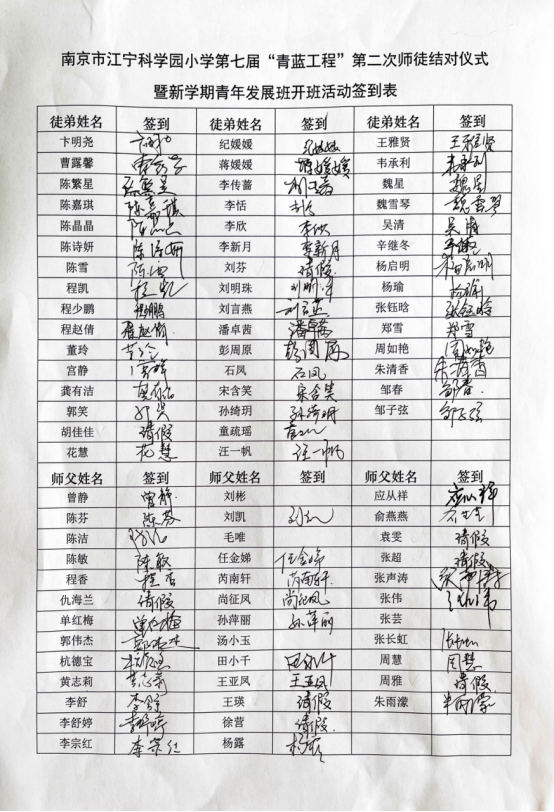 南京市江宁科学园小学第七届“青蓝工程”第二次师徒结对仪式
暨新学期青年发展班开班活动签到表
徒弟姓名 签到 徒弟姓名 签到 徒弟姓名 签到
卞明尧 纪媛媛 纪媛媛 王雅贤 王雅贤
曹露馨 蒋媛媛 蒋媛媛 韦承利 韦承利
陈繁星 陈繁星 李传蔷 魏星 魏星
陈嘉琪 陈嘉琪 李恬 魏雪琴 魏雪琴
陈晶晶 陈晶晶 李欣 吴清 吴清
陈诗妍 陈诗妍 李新月 李新月 辛继冬
陈雪 陈雪 刘芬 请假 杨启明 杨启明
程凯 程凯 刘明珠 刘明珠 杨瑜 杨瑜
程少鹏 程少鹏 刘言燕 刘言燕 张钰晗 张钰晗
程赵倩 程赵倩 潘卓茜 潘卓茜 郑雪 郑雪
董玲 董玲 彭周原 彭周原 周如艳 周如艳
宫静 宫静 石凤 石凤 朱清香 朱清香
龚有洁 龚有洁 宋含笑 宋含笑 邹春 邹春
郭笑 郭笑 孙绮玥 孙绮玥 邹子弦 邹子弦
胡佳佳 请假 童疏瑶
花慧 花慧 汪一帆 汪一帆
师父姓名 签到 师父姓名 签到 师父姓名 签到
曾静 曾静 刘彬 应从祥 应从祥
陈芬 陈芬 刘凯 刘凯 俞燕燕
陈洁 毛唯 袁雯 请假
陈敏 陈敏 任金娣 任金娣 张超 请假
程香 程香 芮南轩 芮南轩 张声涛 张声涛
仇海兰 请假 尚征凤 尚征凤 张伟
单红梅 单红梅 孙萍丽 孙萍丽 张芸
郭伟杰 郭伟杰 汤小玉 张长虹
杭德宝 杭德宝 田小千 田小千 周慧 周慧
黄志莉 黄志莉 王亚凤 王亚凤 周雅 请假
李舒 李舒 王瑛 请假 朱雨濛 朱雨濛
李舒婷 李舒婷 徐营 请假
李宗红 李宗红 杨露 杨露